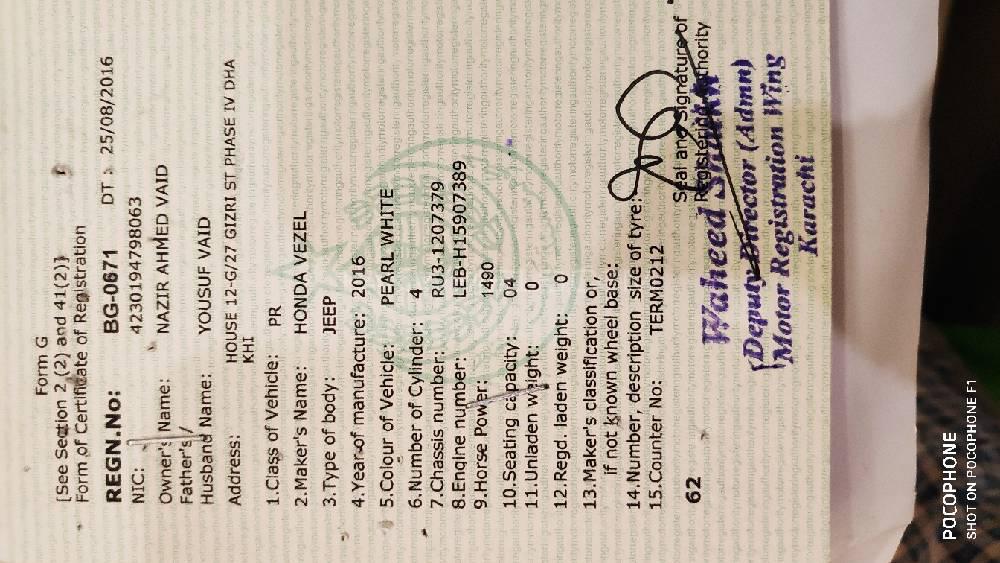 Form G
[See Section 2 (2) and 41(2)]
Form of Certificate of Registration
REGN.No: BG-0671 DT : 25/08/2016
NIC: 4230194798063
Owner's Name: NAZIR AHMED VAID
Father's /
Husband Name: YOUSUF VAID
Address: HOUSE 12-G/27 GIZRI ST PHASE IV DHA
KHI
1.Class of Vehicle: PR
2.Maker's Name: HONDA VEZEL
3.Type of body: JEEP
4.Year of manufacture: 2016
5.Colour of Vehicle: PEARL WHITE
6.Number of Cylinder: 4
7.Chassis number: RU3-1207379
8.Engine number: LEB-H15907389
9.Horse Power: 1490
10.Seating capacity: 04
11.Unladen weight: 0
12.Regd. laden weight: 0
13.Maker's classification or,
if not known wheel base:
14.Number, description size of tyre:
15.Counter No: TERM0212
62
Seal and Signature of
Registering Authority
Waheed Shaikh
(Deputy Director (Admn)
Motor Registration Wing
Karachi
POCOPHONE
SHOT ON POCOPHONE F1